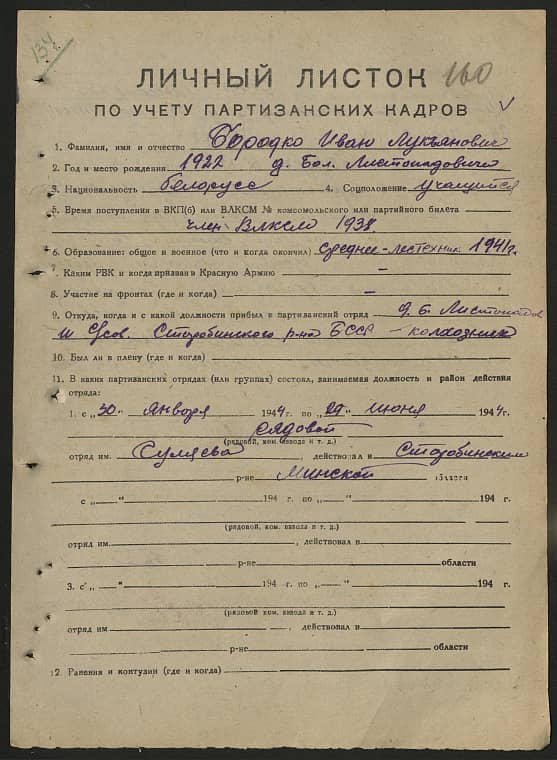 134
ЛИЧНЫЙ ЛИСТОК 160
ПО УЧЕТУ ПАРТИЗАНСКИХ КАДРОВ
1. Фамилия, имя и отчество Бородко Иван Лукьянович
2. Год и место рождения 1922 д. Бол. Листопадовичи
3. Национальность белорусс 4. Соцположение учащийся
5. Время поступления в ВКП(б) или ВЛКСМ № комсомольского или партийного билета
член ВЛКСМ 1938
6. Образование: общее и военное (что и когда окончил) среднее - лестехник 1941г.
7. Каким РВК и когда призван в Красную Армию —
8. Участие на фронтах (где и когда) —
9. Откуда, когда и с какой должности прибыл в партизанский отряд д. Б. Листопадов
Старобинского р-на БССР – колхозник
10. Был ли в плену (где и когда)
11. В каких партизанских отрядах (или группах) состоял, занимаемая должность и район действия
отряда:
1. с „30" января 1944 г. по „29" июня 1944 г.
рядовой
(рядовой, ком. взвода и т. д.)
отряд им. Суляева, действовал в Старобинским
р-не Минской области
с „—"—194 г. по „—"—194 г.
(рядовой, ком. взвода и т. д.)
отряд им.—, действовал в—
р-не— области
3. с „—"—194 г. по „—"—194 г.
(рядовой ком. взвода и т. д.)
отряд им—, действовал в—
р-не— области
12. Ранения и контузии (где и когда)